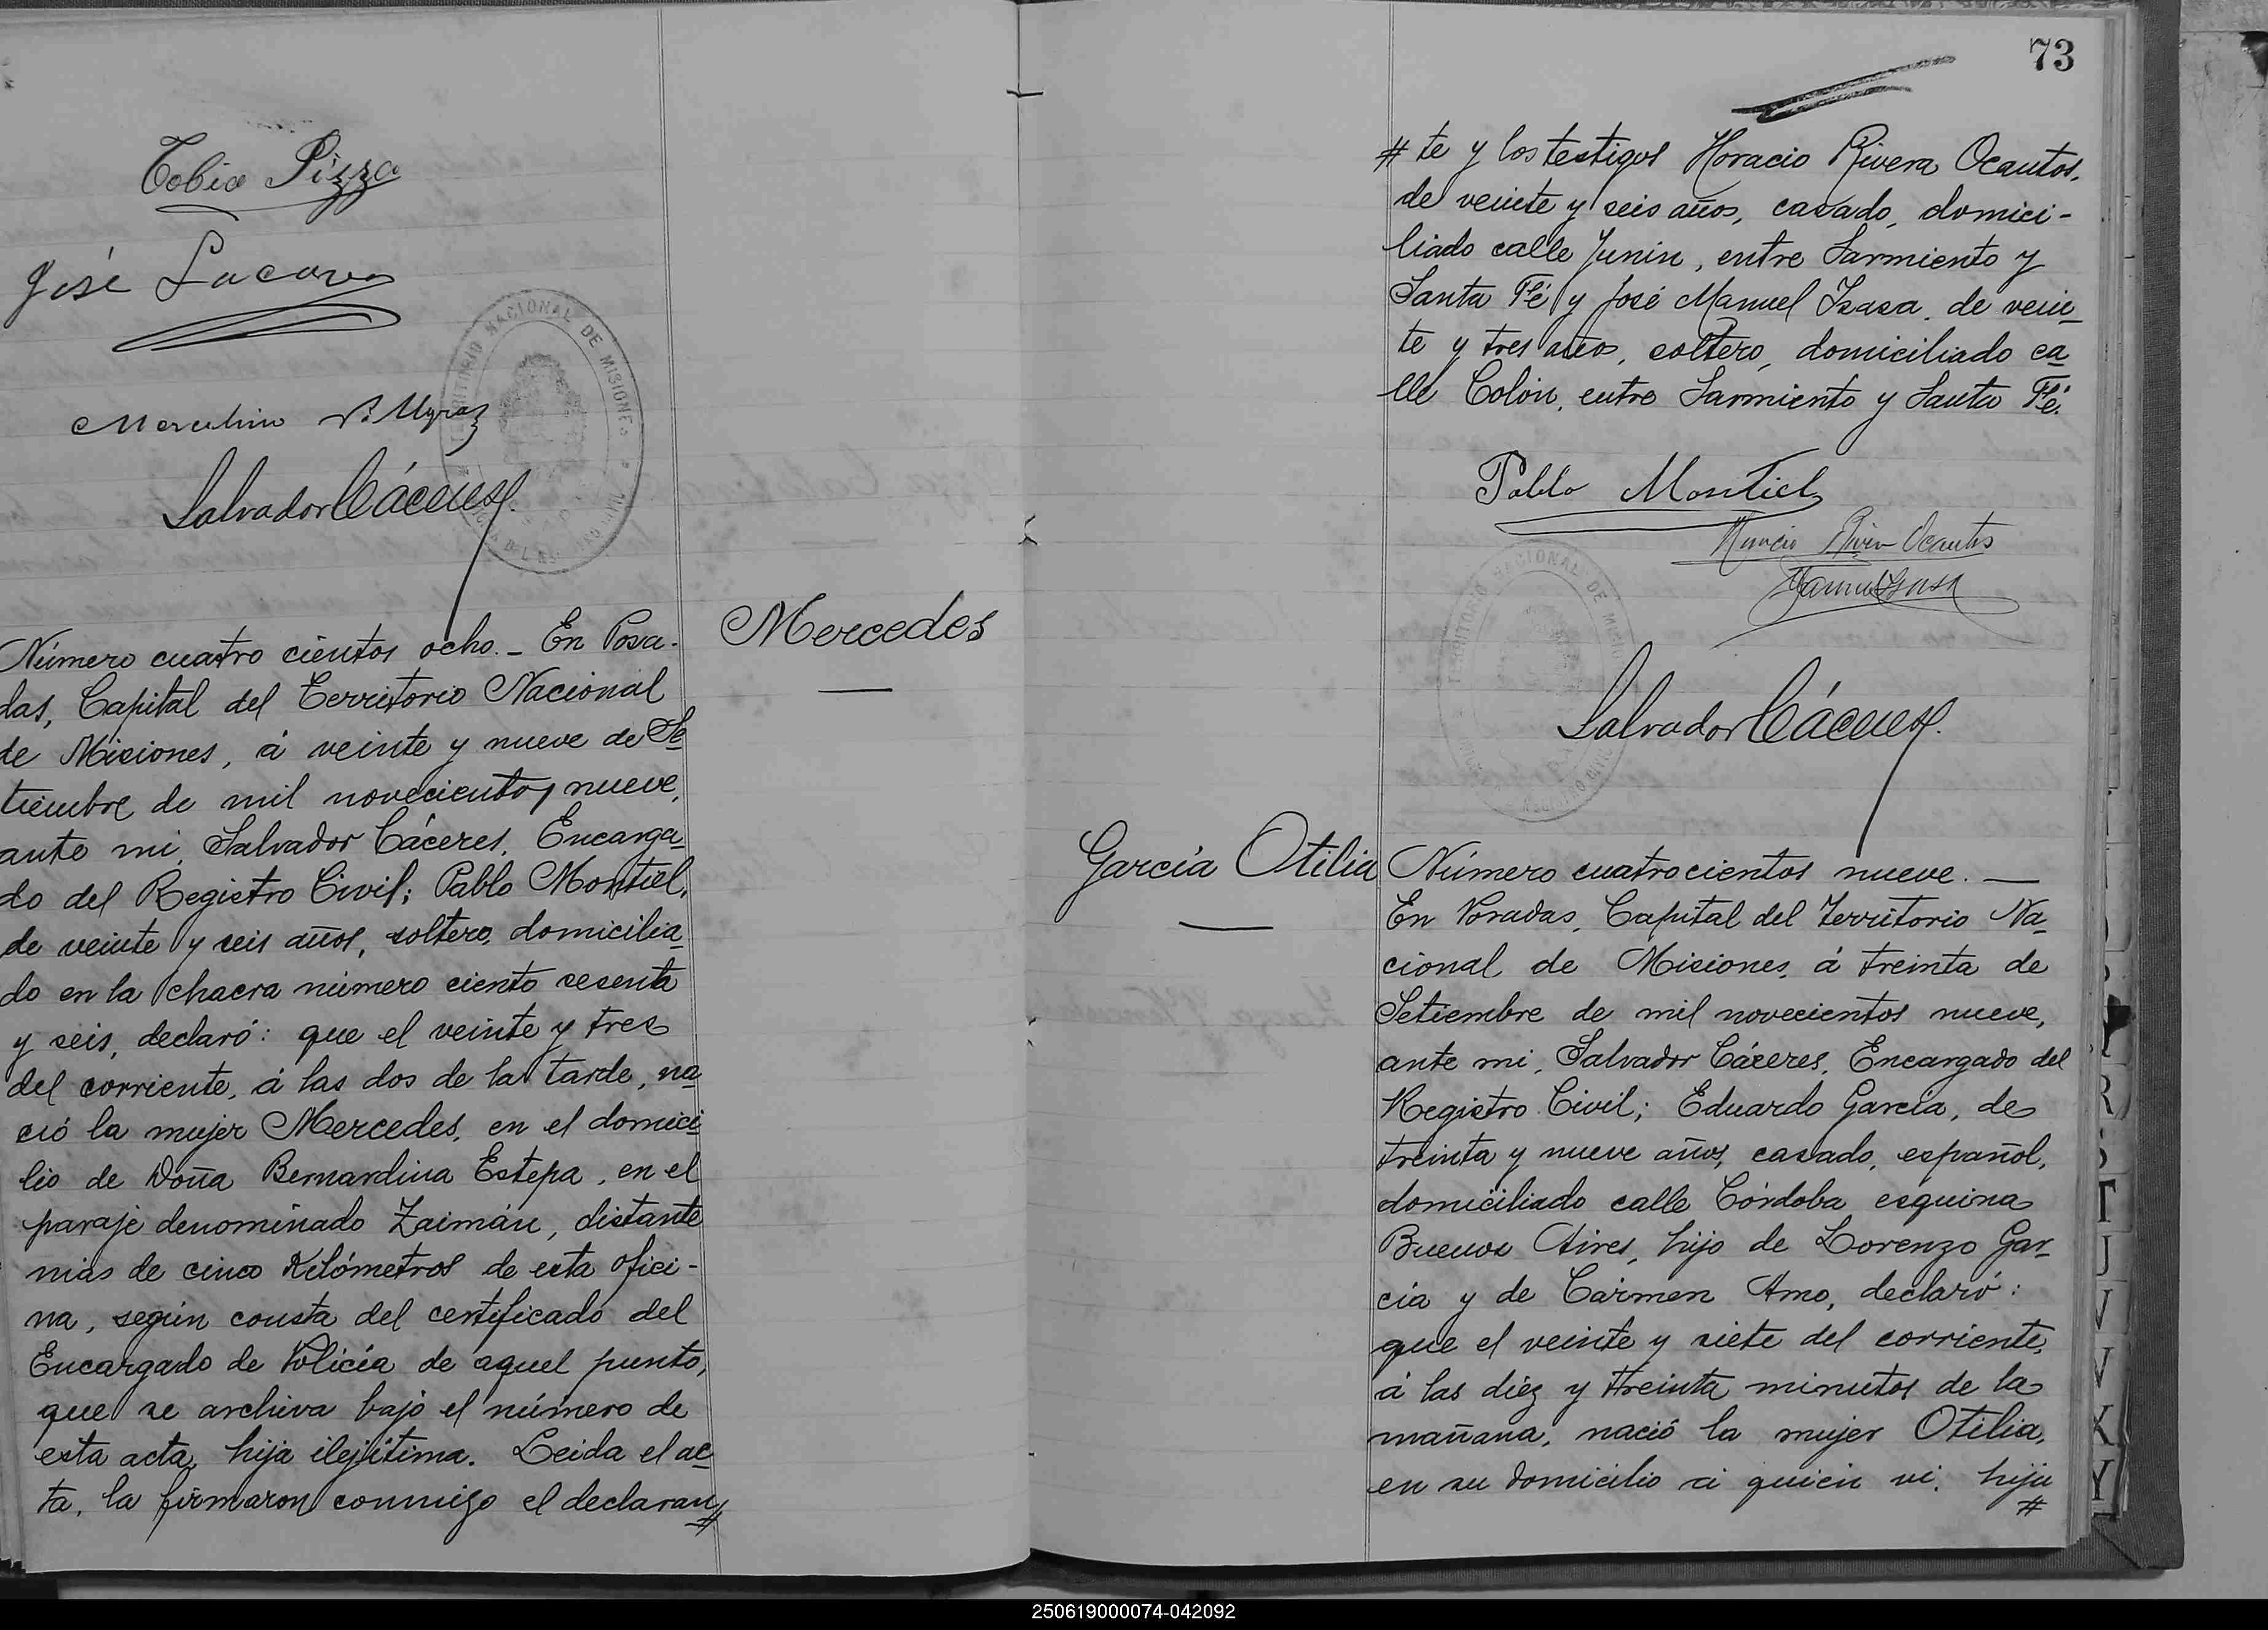 Tobia Pizza
José Lacava
Salvador Cáceres.
TERRITORIO NACIONAL DE MISIONES
Número cuatro cientos ocho. - En Posa-
das, Capital del Territorio Nacional
de Misiones, á veinte y nueve de Se
tiembre de mil novecientos nueve,
ante mi, Salvador Cáceres, Encarga
do del Registro Civil; Pablo Montiel,
de veinte y seis años, soltero, domicilia
do en la chacra número ciento sesenta
y seis, declaró: que el veinte y tres
del corriente, á las dos de la tarde, na
ció la mujer Mercedes, en el domici
lio de Doña Bernardina Estepa, en el
paraje denominado Zaimán, distante
mas de cinco Kilómetros de esta ofici-
na, según consta del certificado del
Encargado de Policía de aquel punto,
que se archiva bajo el número de
esta acta, hija ilejítima. Leida el ac
ta, la firmaron conmigo el declaran #
Mercedes
73
# te y los testigos Horacio Rivera Ocantos,
de veinte y seis años, casado, domici-
liado calle Junin, entre Sarmiento y
Santa Fé y José Manuel Isasa, de vein
te y tres años, soltero, domiciliado ca
lle Colón, entre Sarmiento y Santa Fé.
Pablo Montiel
Horacio Rivera Ocantos
TERRITORIO NACIONAL DE MISIONES
Salvador Cáceres.
García Otilia
Número cuatrocientos nueve. —
En Posadas, Capital del Territorio Na
cional de Misiones, á treinta de
Setiembre de mil novecientos nueve,
ante mi, Salvador Cáceres, Encargado del
Registro Civil; Eduardo García, de
treinta y nueve años, casado, español,
domiciliado calle Córdoba esquina
Buenos Aires, hijo de Lorenzo Gar
cía y de Cármen Amo, declaró:
que el veinte y siete del corriente,
á las diéz y treinta minutos de la
mañana, nació la mujer Otilia,
en su domicilio á quien vi, hija
#
R
S
T
U
V
V
X
Y
250619000074-042092